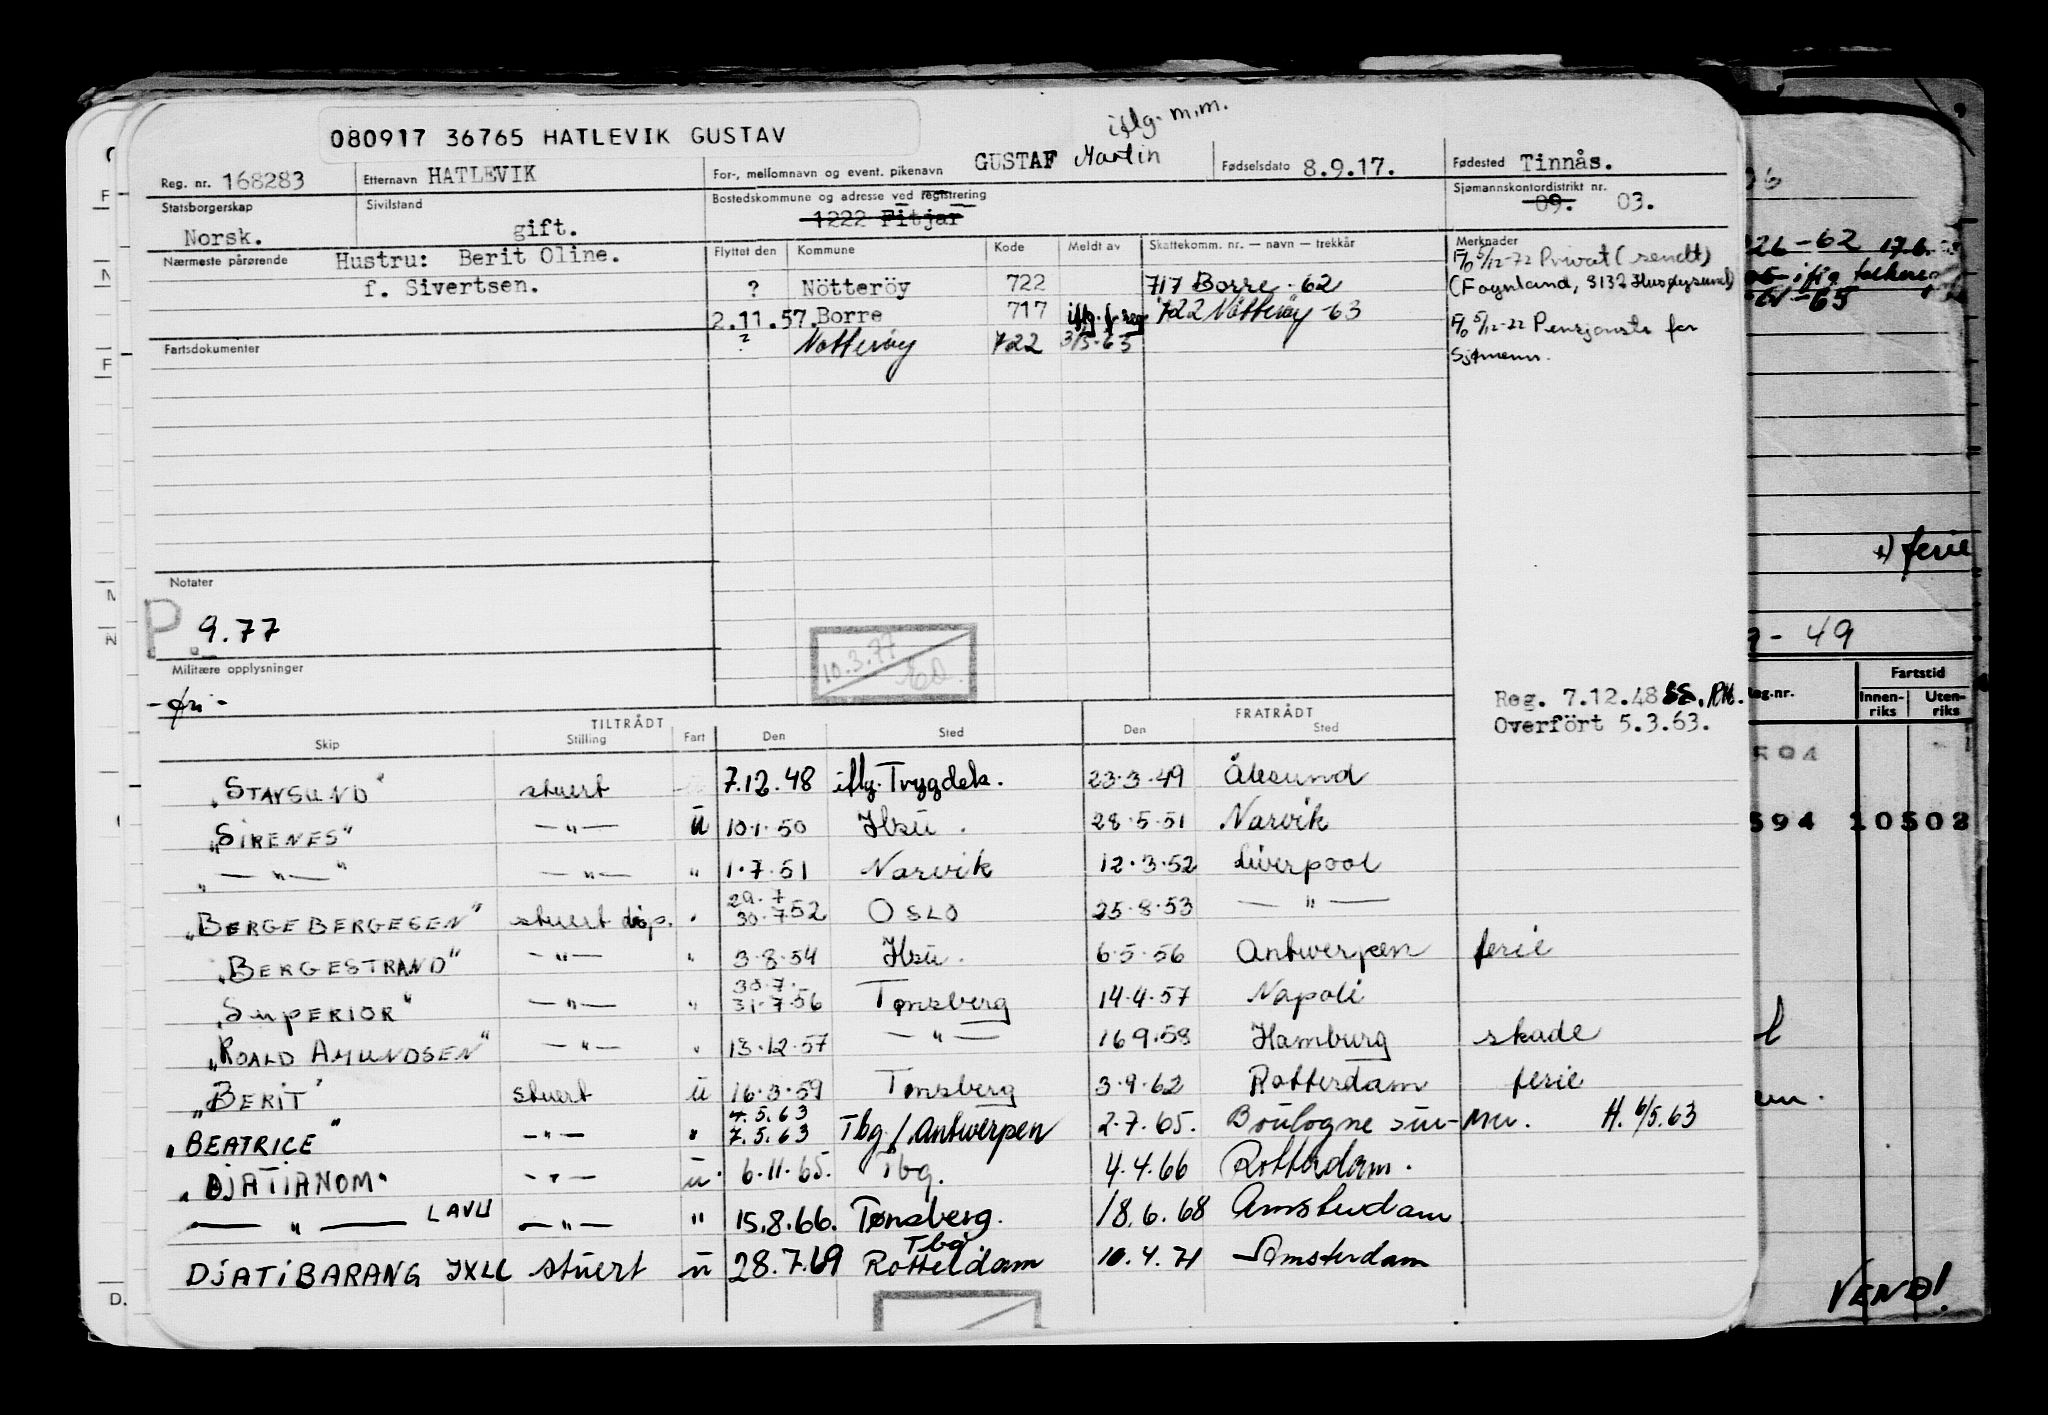 080917 36765 HATLEVIK GUSTAV
iflg. m.m.
Reg. nr. 168283 Etternavn HATLEVIK For-, mellomnavn og event. pikenavn GUSTAF Martin Fødselsdato 8.9.17. Fødested Tinnås.
Statsborgerskap Norsk. Sivilstand gift. Bostedskommune og adresse ved registrering 1222 Fitjar Sjømannskontordistrikt nr. 09. 03.
Nærmeste pårørende Hustru: Berit Oline. Flyttet den Kommune Kode Meldt av Skattekomm. nr. — navn — trekkår Merknader
f. Sivertsen. ? Nötteröy 722 717 Borre - 62
2.11.57. Borre 717 iflg. f. reg 722 Nötteröy - 63
Fartsdokumenter ? Nøtterøy 722 3/5-65
F/o 5/12-72 Privat (sendt)
(Føynland, 3132 Husøysund)
F/o 5/12-72 Pensjonstr for
Sjømenn.
Notater
P 9.77
10.3.77
Militære opplysninger
- fri -
Reg. 7.12.48 SS. PM.
Overfört 5.3.63.
TILTRÅDT FRATRÅDT
Skip Stilling Fart Den Sted Den Sted
"STAVSUND" stuert 7.12.48 iflg. Trygdek. 23.3.49 Ålesund
"SIRENES" — " — u 10.1.50 Hsu. 28.5.51 Narvik
" — " — " — " — " 1.7.51 Narvik 12.3.52 Liverpool
"BERGEBERGESEN" stuert disp. " 29.7 30.7.52 OSLO 25.8.53 — " —
"BERGESTRAND" — " — " 3.8.54 Hsu. 6.5.56 Antwerpen ferie
"SUPERIOR" — " — " 30.7. 31.7.56 Tønsberg 14.4.57 Napoli
"ROALD AMUNDSEN" — " — " 13.12.57 — " — 16.9.58 Hamburg skade
"BERIT" stuert u 16.3.59 Tønsberg 3.9.62 Rotterdam ferie
"BEATRICE" — " — " 4.5.63 7.5.63 Tbg / Antwerpen 2.7.65. Boulogne sur-Mer. H. 6/5.63
"DJATIANOM" — " — u. 6.11.65. Tbg. 4.4.66 Rotterdam.
— " — LAVU — " — " 15.8.66. Tønsberg. 18.6.68 Amsterdam
DJATIBARANG JXLC stuert u 28.7.69 Tbg Rotterdam 10.4.71 Amsterdam
226-62 17.6.
-65
+) ferie
- 49
Reg.nr. Fartstid
Innen-riks Uten-riks
594
594 10502
VEND!